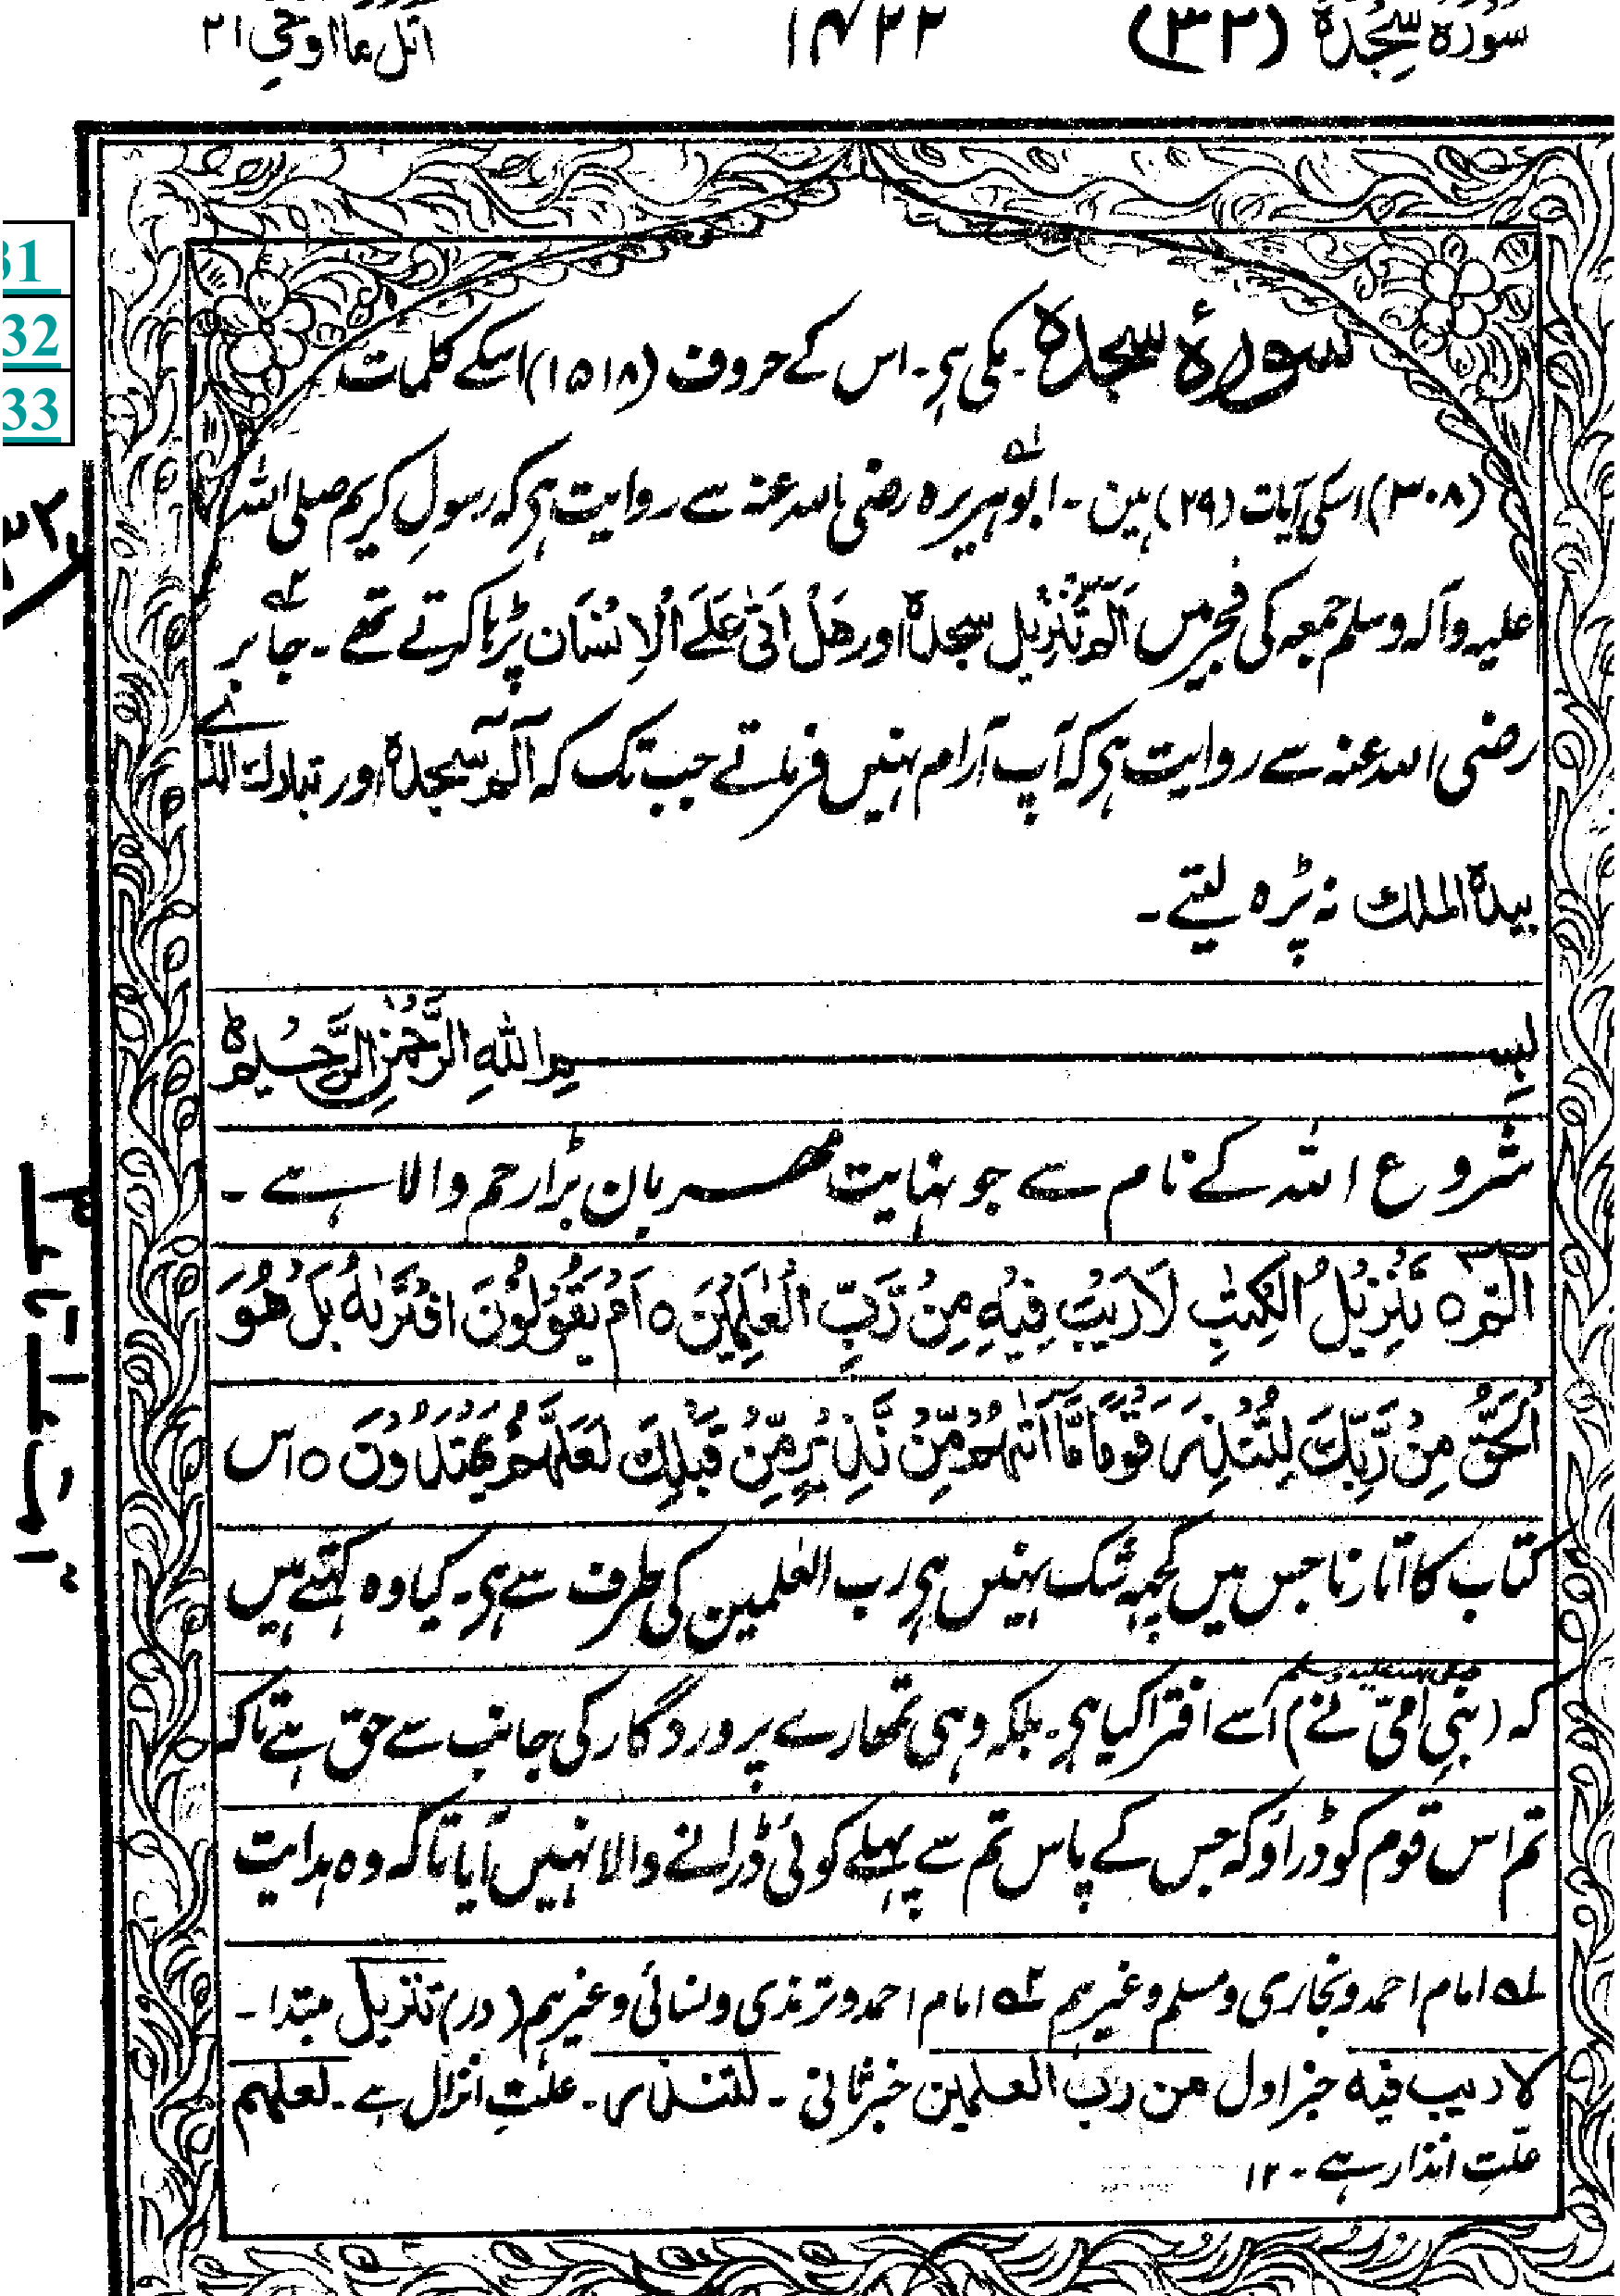 سورۃ سجدۃ (٣٢)
١٣٢٢
اتل ما اوحی ٢١
31
32
33
سورۂ سجدہ ۔ مکی ہی ۔ اس کے حروف (١٥١٨) اسکے کلمات
(٣٠٨) اسکی آیات (٢٩) ہین ۔ ابوہریرہ رضی اللہ عنہ سے روایت ہی کہ رسولِ کریم صلی اللہ
علیہ وآلہ وسلم جمعہ کی فجر میں الٓمٓ تَنْزِیل سجدۃ اور هَلْ اَتٰی عَلَے الْاِنْسَان پڑہا کرتے تھے ۔ جابر
رضی اللہ عنہ سے روایت ہی کہ آپ آرام نہیں فرماتے جب تک کہ الٓمٓ سجدۃ اور تبارك الذے
بیدہ الملك نہ پڑہ لیتے ۔
بِسْمِ اللهِ الرَّحْمٰنِ الرَّحِيْمِ ۝
شروع اللہ کے نام سے جو نہایت مہربان بڑا رحم والا ہے ۔
الٓمّٓ ۝ تَنْزِيْلُ الْكِتٰبِ لَا رَيْبَ فِيْهِ مِنْ رَّبِّ الْعٰلَمِيْنَ ۝ اَمْ يَقُوْلُوْنَ افْتَرٰىهُ بَلْ هُوَ
الْحَقُّ مِنْ رَّبِّكَ لِتُنْذِرَ قَوْمًا مَّآ اَتٰىهُمْ مِّنْ نَّذِيْرٍ مِّنْ قَبْلِكَ لَعَلَّهُمْ يَهْتَدُوْنَ ۝ اس
کتاب کا اتارنا جس میں کچہہ شک نہیں ہی رب العٰلمین کی طرف سے ہی ۔ کیا وہ کہتے ہیں
کہ (نبی امّی نے صلی اللہ علیہ وسلم) اُسے افترا کیا ہی ۔ بلکہ وہی تمھارے پروردگار کی جانب سے حق ہے تاکہ
تم اس قوم کو ڈراؤ کہ جس کے پاس تم سے پہلے کوئی ڈرانے والا نہیں آیا تاکہ وہ ہدایت
لہ١ امام احمد و بخاری و مسلم وغیرہم لہ٢ امام احمد و ترمذی و نسائی وغیرہم (در) تنزیل مبتدا ۔
لا ریب فیہ خبر اول من رب العلمین خبر ثانی ۔ لتنذر ۔ علّتِ انزال ہے ۔ لعلہم
علّتِ انذار ہے ۔ ١٢